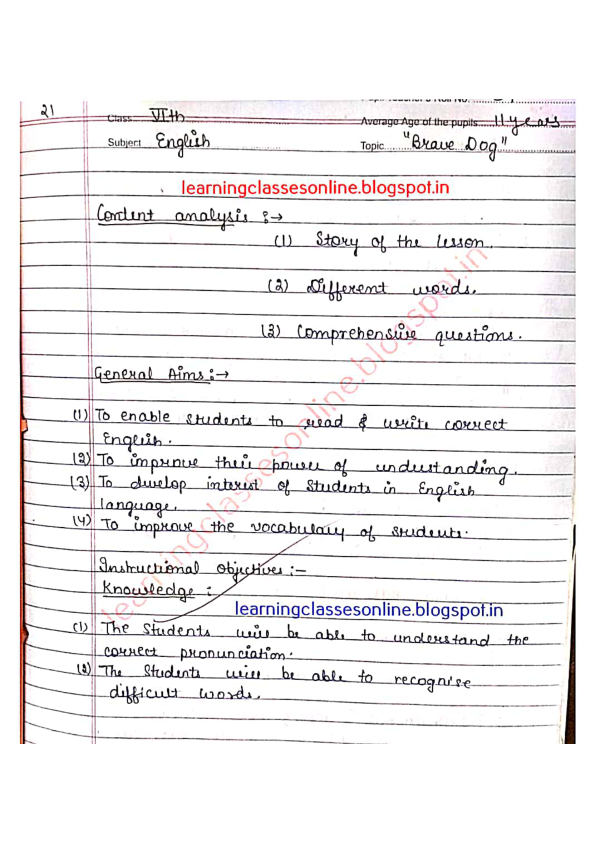 21
Class VIth Average Age of the pupils 11 years
Subject English Topic "Brave Dog"
learningclassesonline.blogspot.in
Content analysis :→
(1) Story of the lesson.
(2) Different words.
(3) Comprehensive questions.
General Aims :→
(1) To enable students to read & write correct
English.
(2) To improve their power of understanding.
(3) To develop interest of students in English
language.
(4) To improve the vocabulary of students.
Instructional objectives :-
Knowledge :
learningclassesonline.blogspot.in
(1) The Students will be able to understand the
correct pronunciation.
(2) The Students will be able to recognise
difficult words.
learningclassesonline.blogspot.in